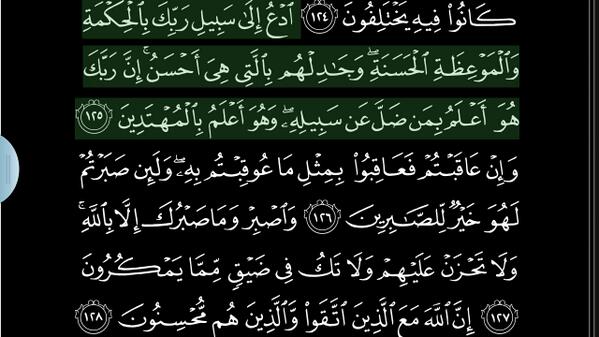 كَانُوا۟ فِيهِ يَخْتَلِفُونَ ١٢٤ ٱدْعُ إِلَىٰ سَبِيلِ رَبِّكَ بِٱلْحِكْمَةِ
وَٱلْمَوْعِظَةِ ٱلْحَسَنَةِ ۖ وَجَـٰدِلْهُم بِٱلَّتِى هِىَ أَحْسَنُ ۚ إِنَّ رَبَّكَ
هُوَ أَعْلَمُ بِمَن ضَلَّ عَن سَبِيلِهِۦ ۖ وَهُوَ أَعْلَمُ بِٱلْمُهْتَدِينَ ١٢٥
وَإِنْ عَاقَبْتُمْ فَعَاقِبُوا۟ بِمِثْلِ مَا عُوقِبْتُم بِهِۦ ۖ وَلَئِن صَبَرْتُمْ
لَهُوَ خَيْرٌ لِّلصَّـٰبِرِينَ ١٢٦ وَٱصْبِرْ وَمَا صَبْرُكَ إِلَّا بِٱللَّهِ ۚ
وَلَا تَحْزَنْ عَلَيْهِمْ وَلَا تَكُ فِى ضَيْقٍ مِّمَّا يَمْكُرُونَ
١٢٧ إِنَّ ٱللَّهَ مَعَ ٱلَّذِينَ ٱتَّقَوا۟ وَّٱلَّذِينَ هُم مُّحْسِنُونَ ١٢٨